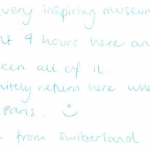 very inspiring museum
nt 4 hours here and
een all of it.
itely return here whe
Paris. ☺
from switzerland